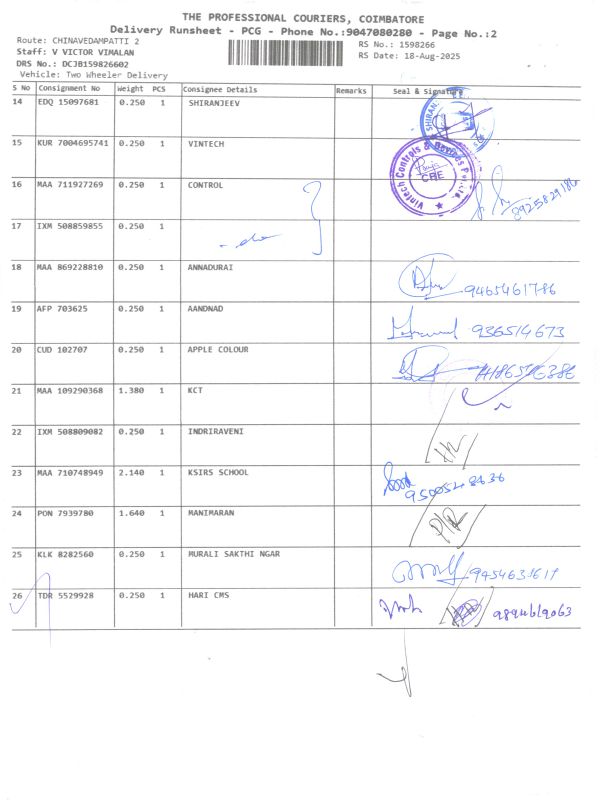 THE PROFESSIONAL COURIERS, COIMBATORE
Delivery Runsheet - PCG - Phone No.:9047080280 - Page No.:2
Route: CHINAVEDAMPATTI 2
RS No.: 1598266
Staff: V VICTOR VIMALAN
RS Date: 18-Aug-2025
DRS No.: DCJB159826602
Vehicle: Two Wheeler Delivery
S No Consignment No Weight PCS Consignee Details Remarks Seal & Signature
14 EDQ 15097681 0.250 1 SHIRANJEEV
SHIRAN
15 KUR 7004695741 0.250 1 VINTECH
Vintech Controls &
CRE
16 MAA 711927269 0.250 1 CONTROL
8925829186
17 IXM 508859855 0.250 1
18 MAA 869228810 0.250 1 ANNADURAI 9465461786
19 AFP 703625 0.250 1 AANDNAD 936514673
20 CUD 102707 0.250 1 APPLE COLOUR
21 MAA 109290368 1.380 1 KCT
22 IXM 508809082 0.250 1 INDRIRAVENI
23 MAA 710748949 2.140 1 KSIRS SCHOOL
24 PON 7939780 1.640 1 MANIMARAN
25 KLK 8282560 0.250 1 MURALI SAKTHI NGAR
26 TDR 5529928 0.250 1 HARI CMS 9894619063